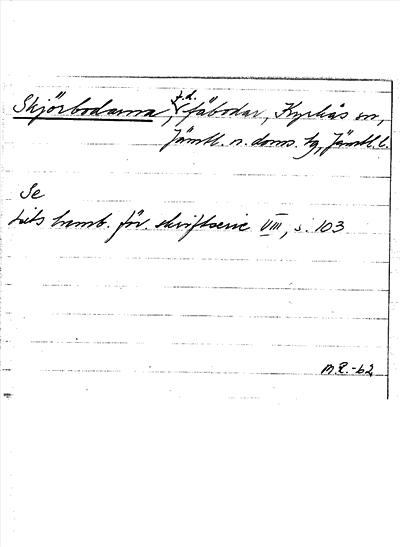 Skjörbodarna, f.d. fäbodar, Kyrkås sn,
Jämtl. n. doms. tg, Jämtl. l.
Se
Lits hemb. för. skriftserie VIII, s. 103
M.E.-62